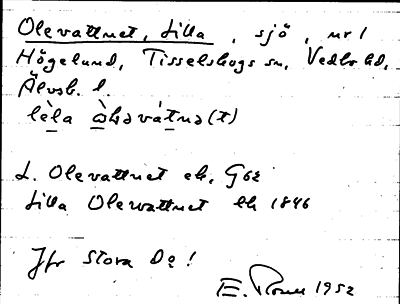 Olevattnet, Lilla, sjö, nr 1
Högelund, Tisselskogs sn, Vedbo hd,
Älvsb. l.
lèla ò̀ləvátnə(t)
L. Olevattnet ek. G62
Lilla Olevattnet lk 1846
Jfr Stora D:o!
E. 1952